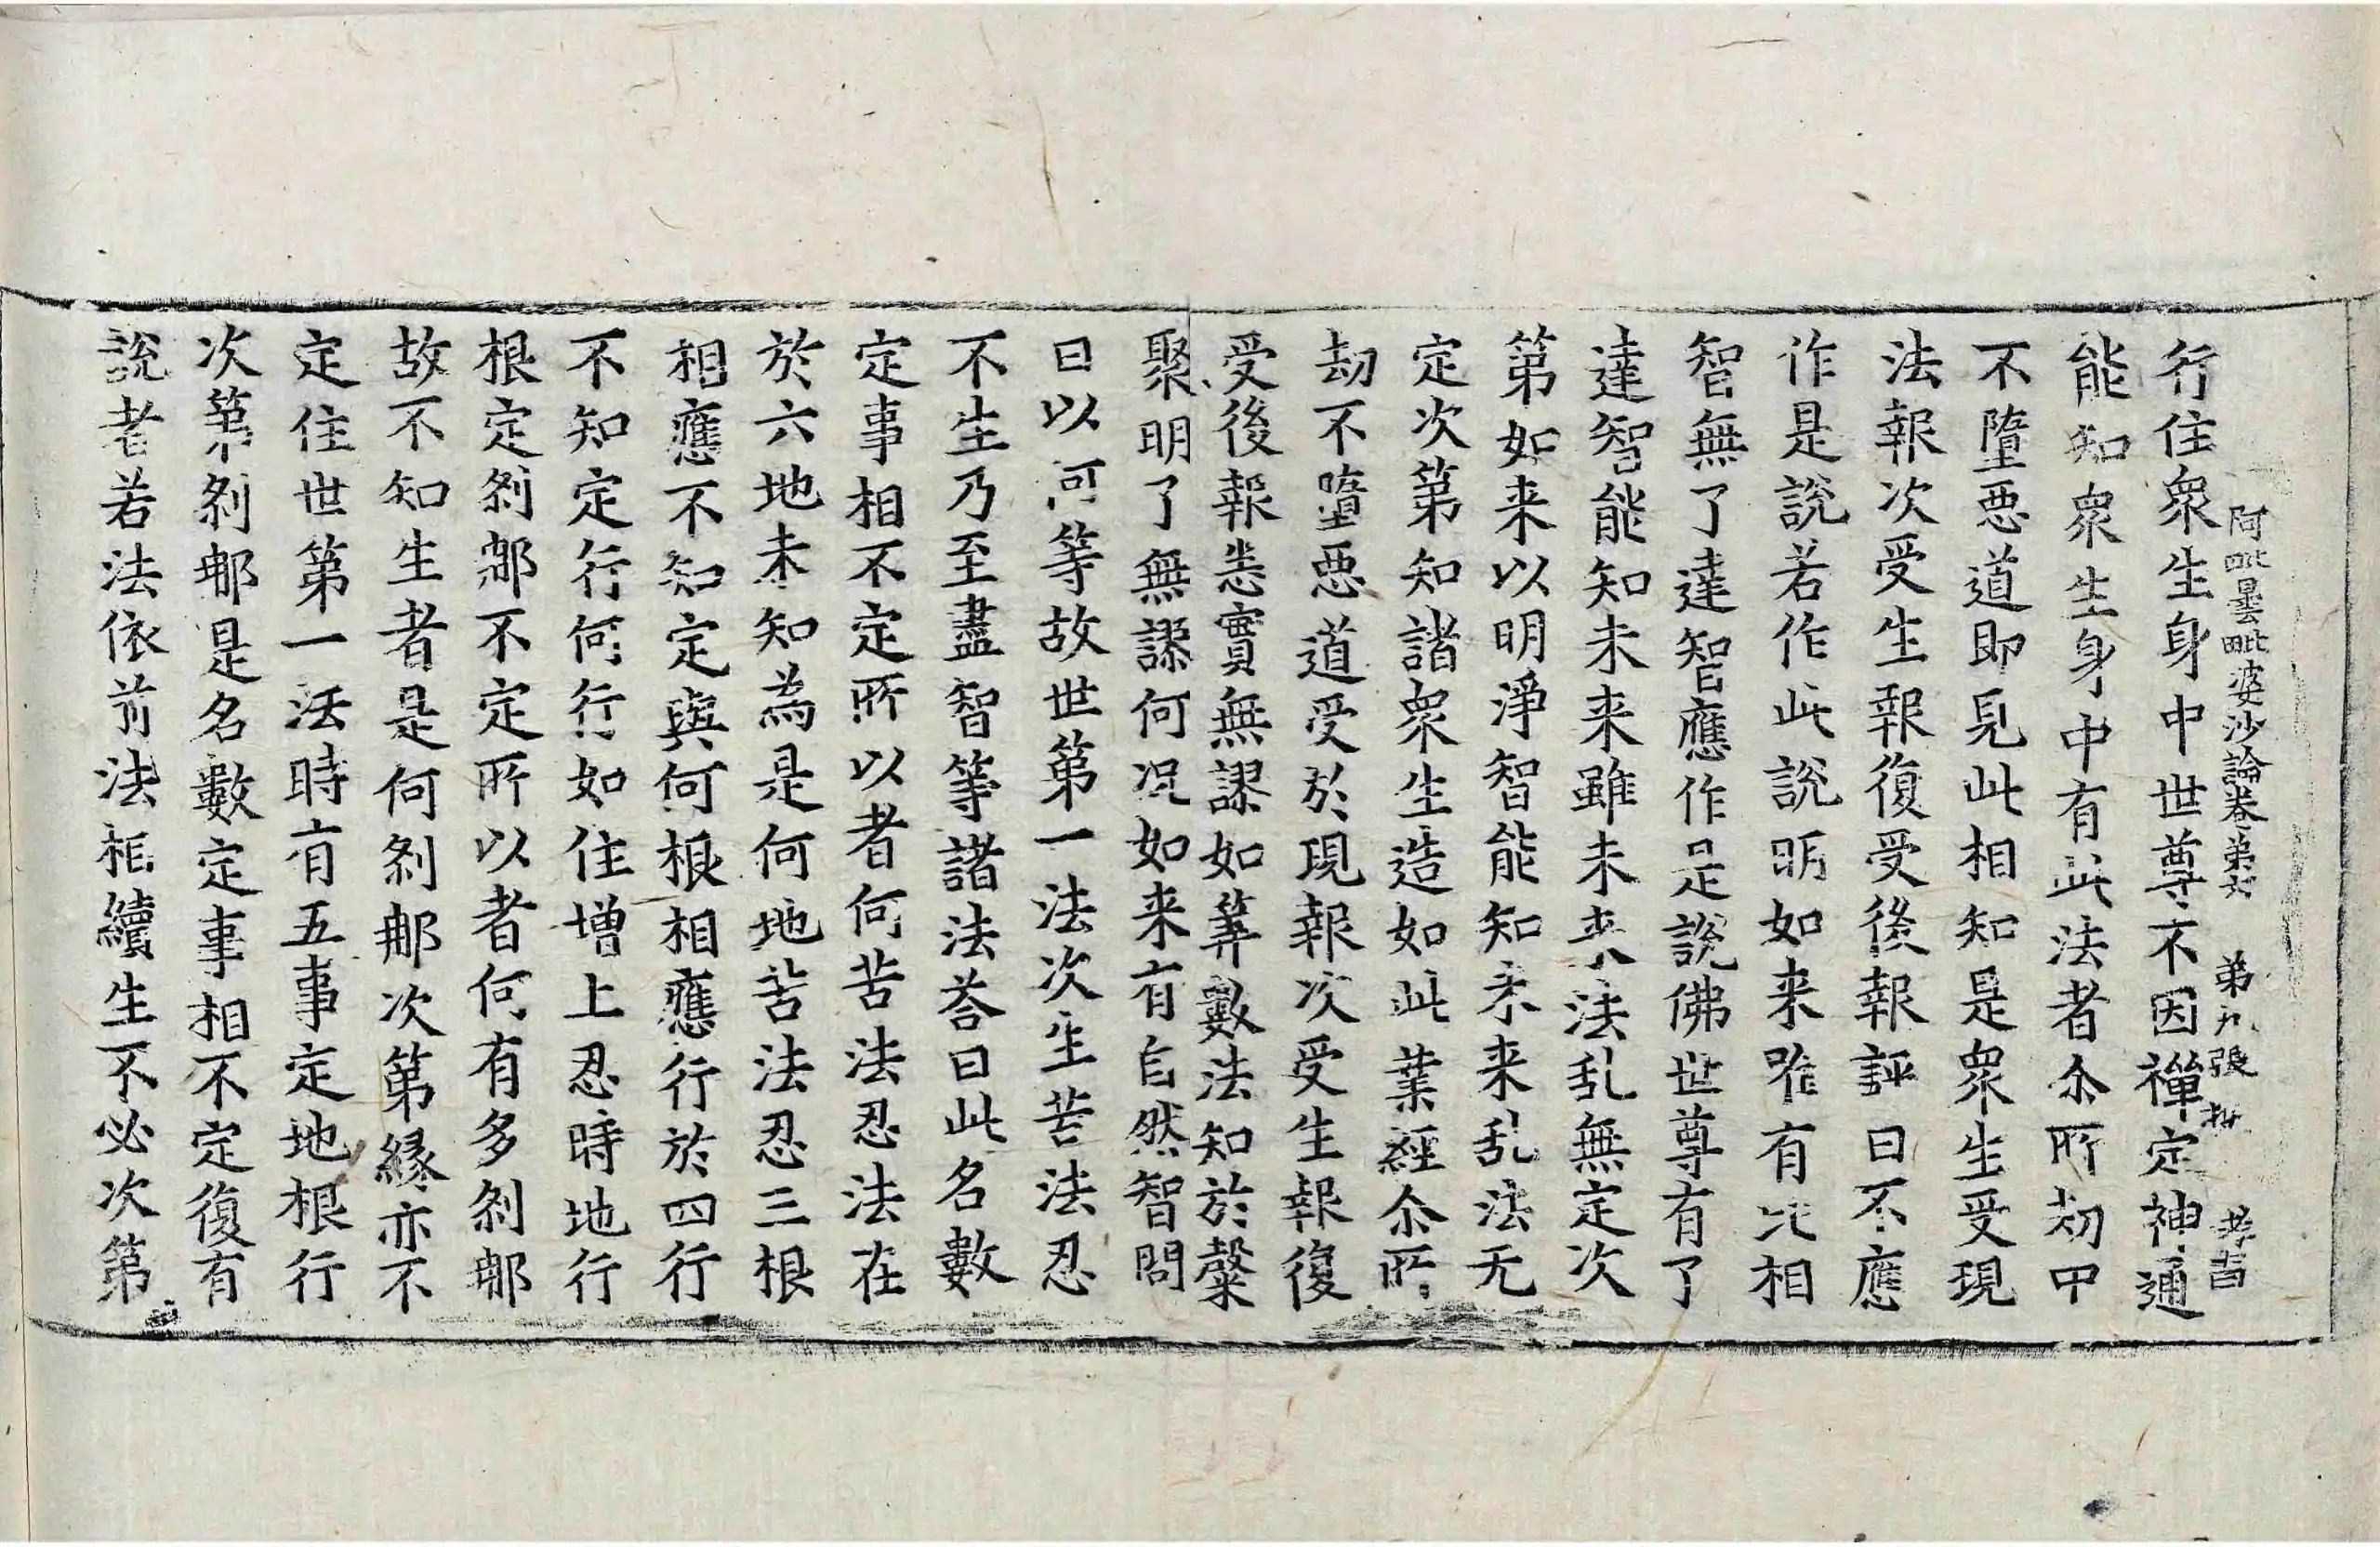 阿毗曇毗婆沙論卷第七 第九張
行住衆生身中世尊不因禪定神通
能知衆生身中有此法者尒所劫中
不墮惡道即見此相知是衆生受現
法報次受生報復受後報評曰不應
作是說若作此說明如来唯有比相
智無了達智應作是說佛世尊有了
達智能知未来雖未来法乱無定次
第如来以明淨智能知未来乱法无
定次第知諸衆生造如此業經尒所
劫不墮惡道受於現報次受生報復
受後報悉實無謬如筭數法知於䕺
聚明了無謬何况如来有自然智問
曰以何等故世第一法次生苦法忍
不生乃至盡智等諸法荅曰此名數
定事相不定所以者何苦法忍法在
於六地未知為是何地苦法忍三根
相應不知定與何根相應行於四行
不知定行何行如住增上忍時地行
根定剎那不定所以者何有多剎那
故不知生者是何剎那次第緣亦不
定住世第一法時有五事定地根行
次第剎那是名數定事相不定復有
說者若法依前法相續生不必次第